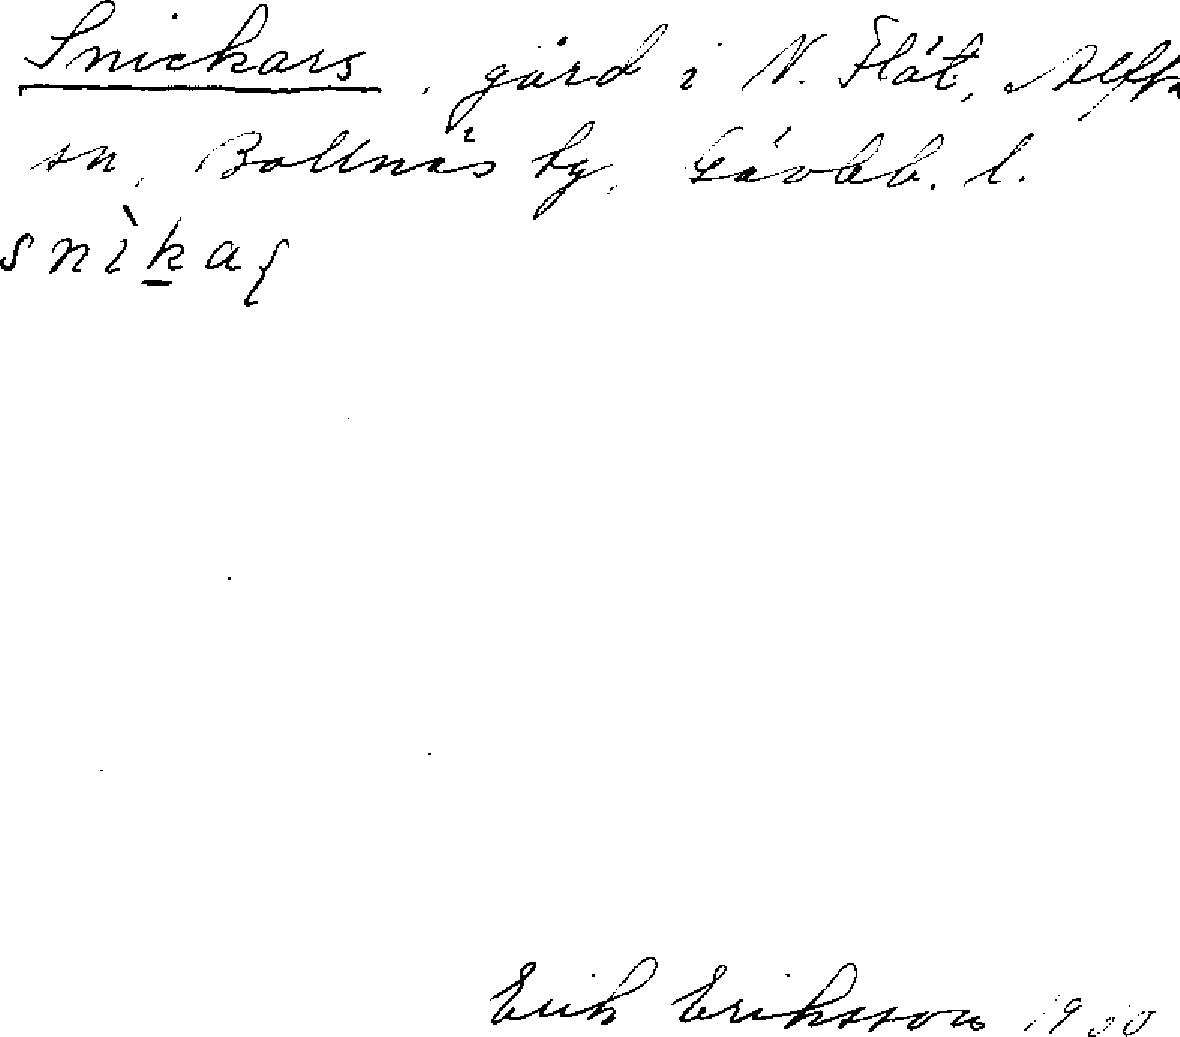 Snickars, gård i N. Flät, Alfta
sn, Bollnäs tg, Gävleb. l.
snìka
Erik Eriksson